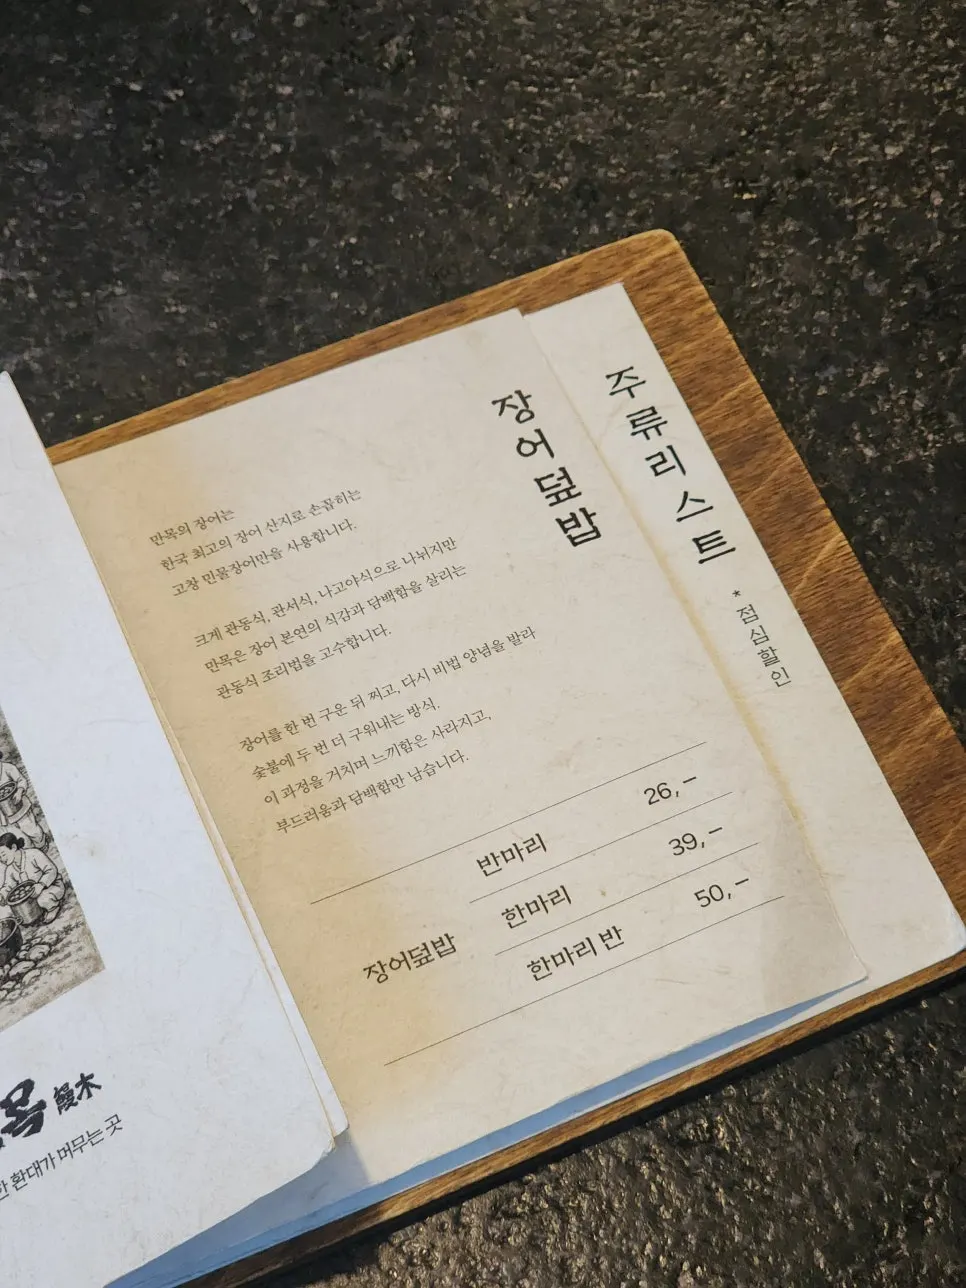 장어덮밥
만목의 장어는
한국 최고의 장어 산지로 손꼽히는
고창 민물장어만을 사용합니다.
크게 관동식, 관서식, 나고야식으로 나뉘지만
만목은 장어 본연의 식감과 담백함을 살리는
관동식 조리법을 고수합니다.
장어를 한 번 구운 뒤 찌고, 다시 비법 양념을 발라
숯불에 두 번 더 구워내는 방식.
이 과정을 거치며 느끼함은 사라지고,
부드러움과 담백함만 남습니다.
장어덮밥
반마리 26,-
한마리 39,-
한마리 반 50,-
주류리스트
*점심할인
목 鰻木
한 환대가 머무는 곳